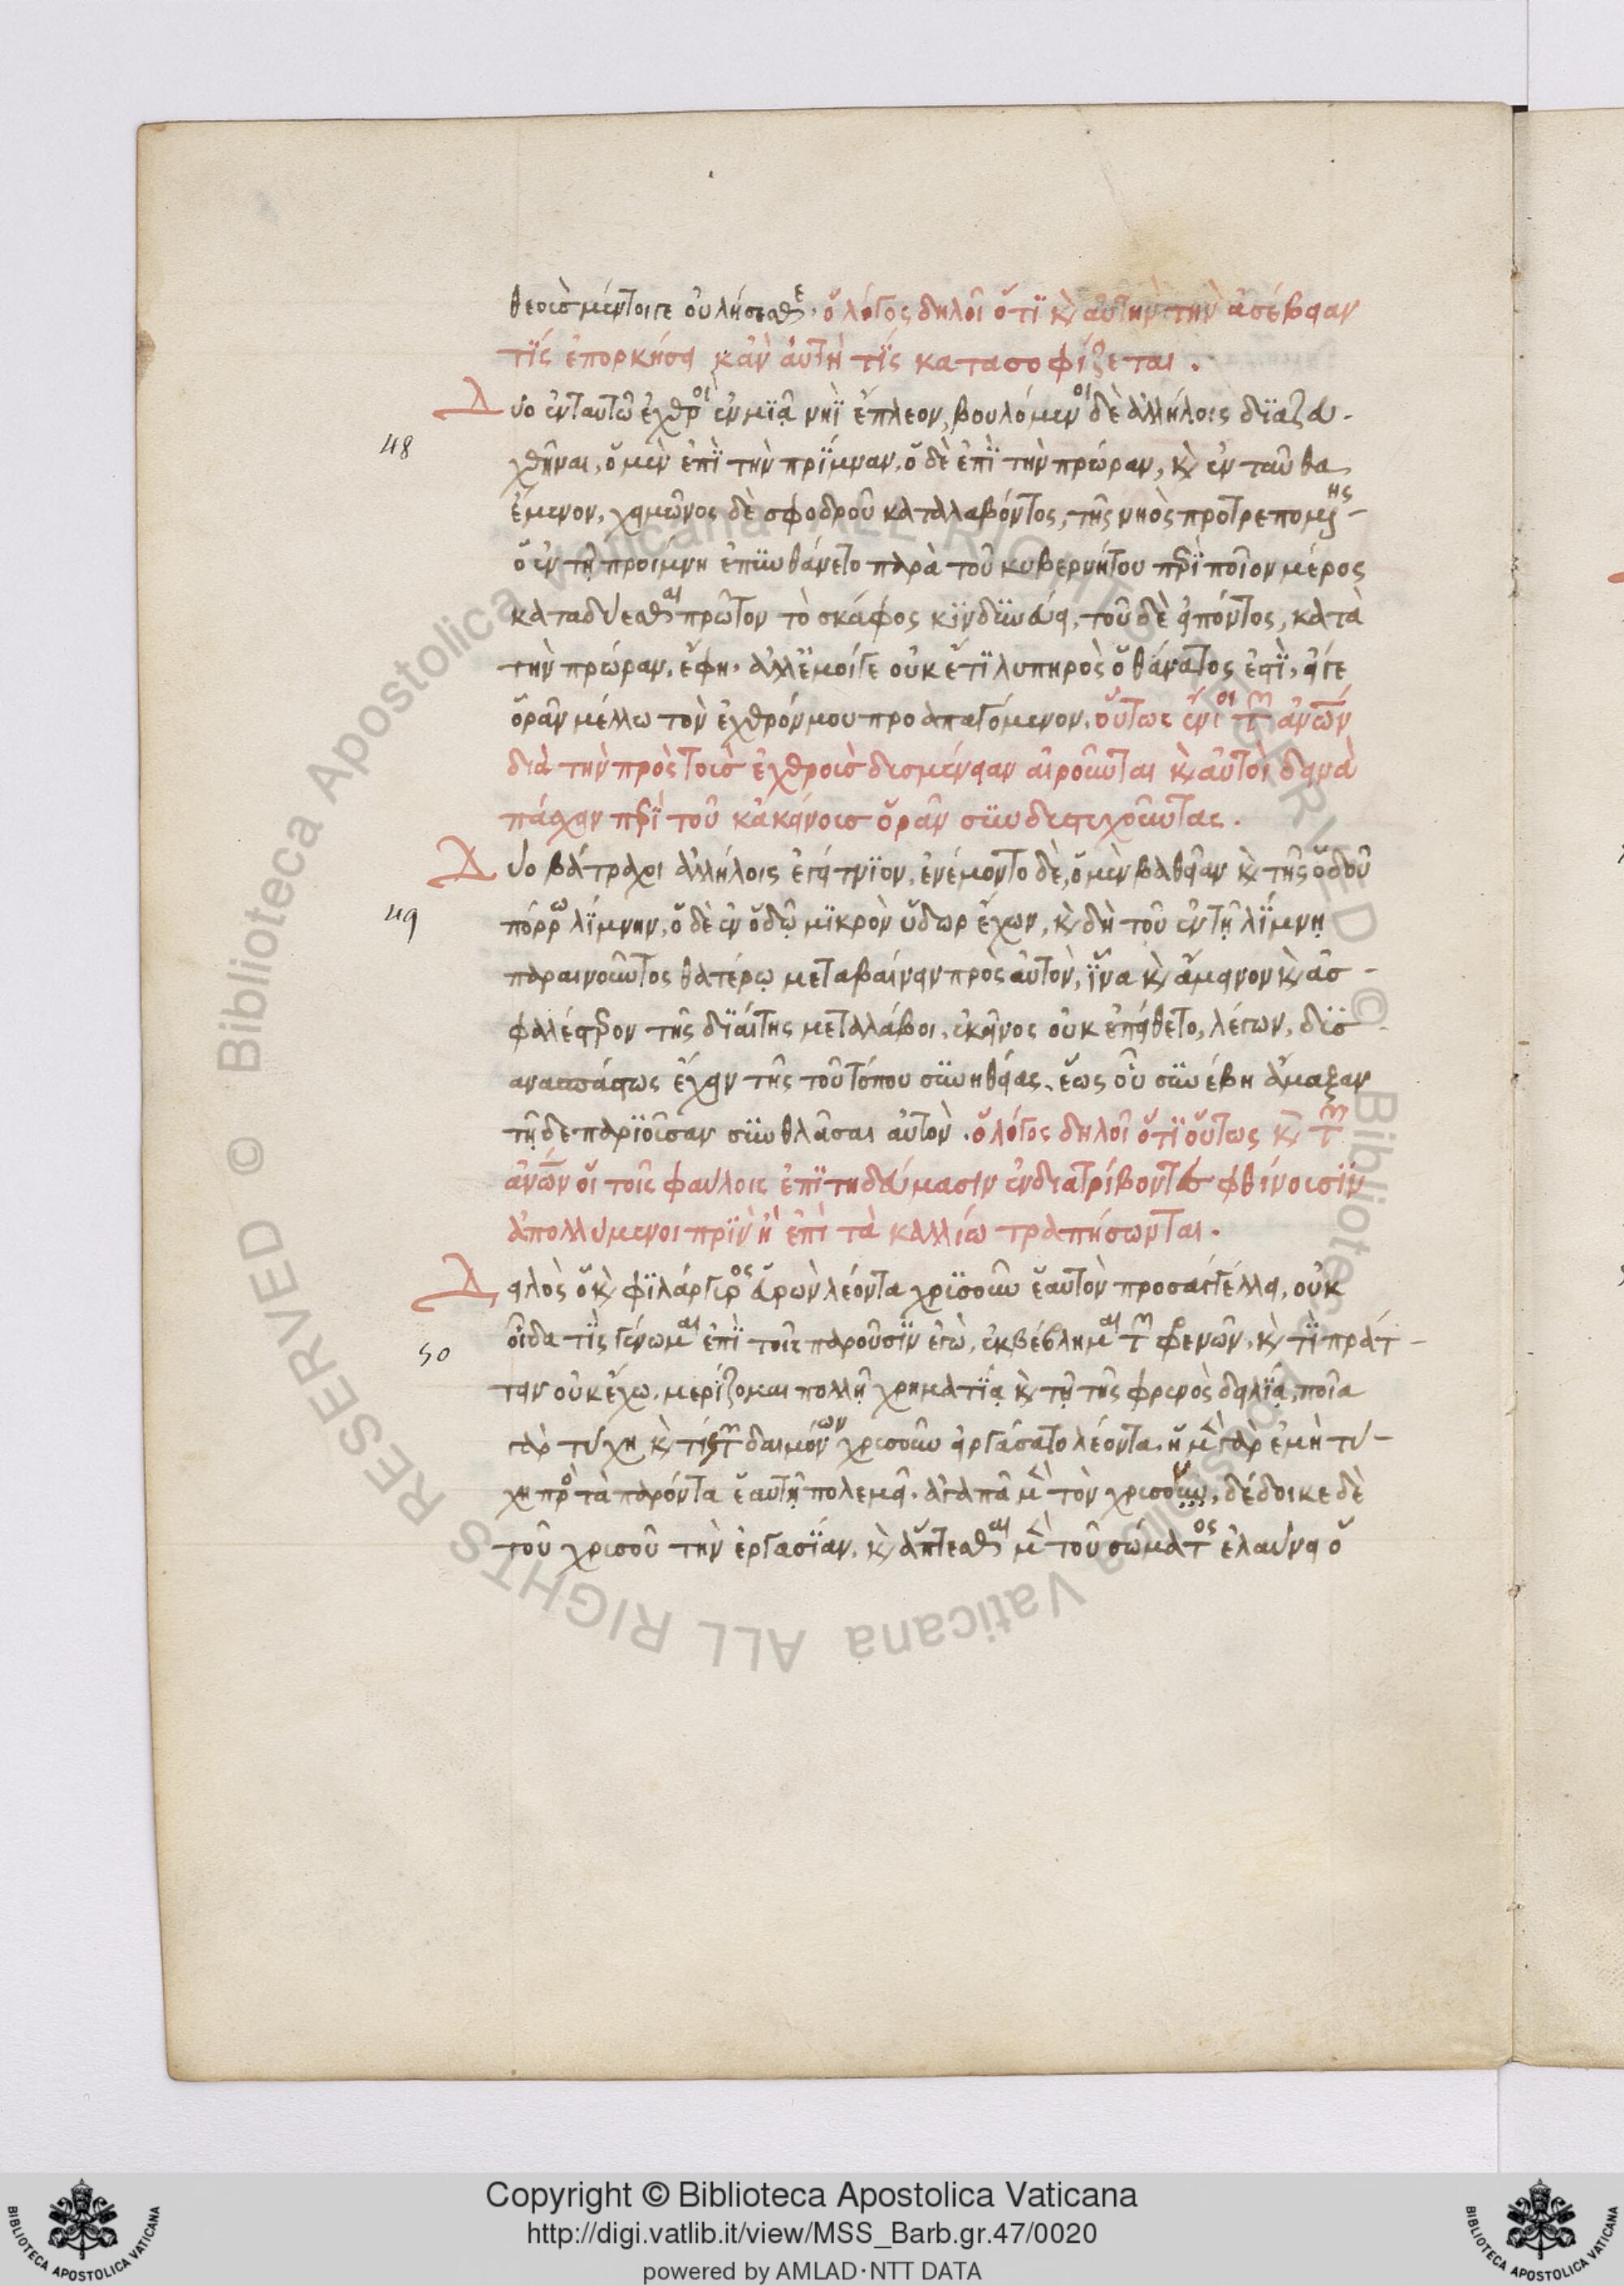 θεοὺς μέντοιγε οὐ λήσεσθε. ὁ λόγος δηλοῖ ὅτι κὰν αὐτὴν τὴν ἀσέβειαν
τὶς ἐπορκήσει κἂν αὐτὴ τὶς κατασοφίζεται.
Δύο ἐνταυτῶ ἐχθροὶ ἐν μϊᾷ νηῒ ἔπλεον, βουλόμενοι δὲ ἀλλήλοις διαζευ-
48
χθῆναι, ὁ μὲν ἐπὶ τὴν πρίμναν, ὁ δὲ ἐπὶ τὴν πρώραν, κὰὶ ἐν ταῦθα
ἔμενον, χειμῶνος δὲ σφοδροῦ καταλαβόντος, τῆς νηὸς προτρεπομένης
ὁ ἐν τῇ προίμνη ἐπυνθάνετο παρὰ τοῦ κυβερνήτου περὶ ποῖον μέρος
καταδύεσθαι πρῶτον τὸ σκάφος κινδυνεύει, τοῦ δὲ εἰπόντος, κατὰ
τὴν πρώραν, ἔφη. ἀλλ' ἔμοιγε οὐκ ἔτι λυπηρὸς ὁ θάνατος ἐστὶ, εἴγε
ὁρᾶν μέλλω τὸν ἐχθρόν μου προαπαγόμενον. οὕτως ἔνιοι τῶν ἀνων
διὰ τὴν πρὸς τοὺς ἐχθροὺς δισμένειαν αἱροῦνται κὰὶ αὐτοὶ δεινὰ
πάσχειν περὶ τοῦ κἀκείνους ὁρᾶν συνδυστυχοῦντας.
Δύο βάτραχοι ἀλλήλοις ἐγειτνίον, ἐνέμοντο δὲ, ὁ μὲν βαθεῖαν κὰὶ τῆς ὁδοῦ
49
πόρρω λίμνην, ὁ δὲ ἐν ὁδῷ μικρὸν ὕδωρ ἔχων, κὰὶ δὴ τοῦ ἐν τῇ λίμνῃ
παραινοῦντος θατέρῳ μεταβαίνειν πρὸς αὐτὸν, ἵνα κὰὶ ἄμεινον κὰὶ ἀσ-
φαλέστερον τῆς διαίτης μεταλάβοι, ἐκεῖνος οὐκ ἐπείθετο, λέγων, δυσ
ανασπάστως ἔχειν τῆς τοῦ τόπου συνηθείας, ἕως οὗ συνέβη ἅμαξαν
τῇδε παριοῦσαν συνθλᾶσαι αὐτόν. ὁ λόγος δηλοῖ ὅτι οὕτως κὰὶ τῶν
ἀνων οἱ τοῖς φαύλοις ἐπιτηδεύμασιν ἐνδιατρίβοντες φθίνουσιν
ἀπολλύμενοι πρὶν ἢ ἐπὶ τὰ καλλίω τραπήσωνται.
Δειλὸς ὁ κὰὶ φιλάργυρος εὑρὼν λέοντα χρισοῦν ἑαυτὸν προσαγγέλλει, οὐκ
50
οἶδα τὶς γένωμαι ἐπὶ τοῖς παροῦσιν ἐγὼ, ἐκβέβλημαι τῶν φρενῶν, κὰὶ τὶ πράτ-
τειν οὐκ ἔχω. μερίζομαι πολλῇ χρηματίᾳ κὰὶ τῇ τῆς φρενὸς δειλίᾳ, ποῖα
γὰρ τύχη κὰὶ τίς τῶν δαιμόνων χρισοῦν εἰργάσατο λέοντα. ἡ μὲν γὰρ ἐμὴ τύ-
χη πρὸ τὰ παρόντα ἑαυτῇ πολεμεῖ. ἀγαπᾶ μὲν τὸν χρισοῦν, δέδοικε δὲ
τοῦ χρισοῦ τὴν ἐργασίαν. κὰὶ ἅπτεσθαι μὲν τοῦ σώματος ἐλαύνει ὁ
Copyright © Biblioteca Apostolica Vaticana
http://digi.vatlib.it/view/MSS_Barb.gr.47/0020
powered by AMLAD·NTT DATA
BIBLIOTECA APOSTOLICA VATICANA
BIBLIOTECA APOSTOLICA VATICANA
© Biblioteca Apostolica Vaticana ALL RIGHTS RESERVED © Biblioteca Apostolica Vaticana ALL RIGHTS RESERVED